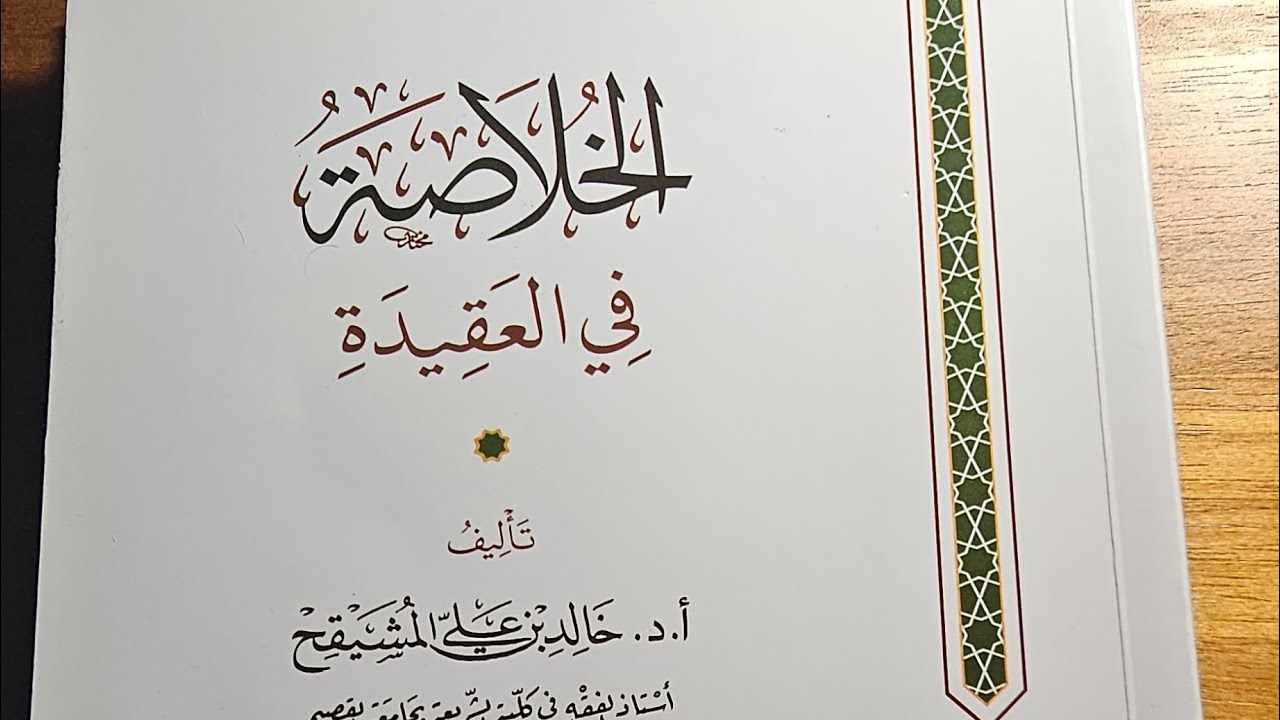 الخُلَاصَةُ
فِي العَقِيدَةِ
تَأْلِيفُ
أ.د. خَالِدِ بْنِ عَلِيّ المُشَيْقِحِ
أستاذ الفقه في كلية الشريعة بجامعة القصيم